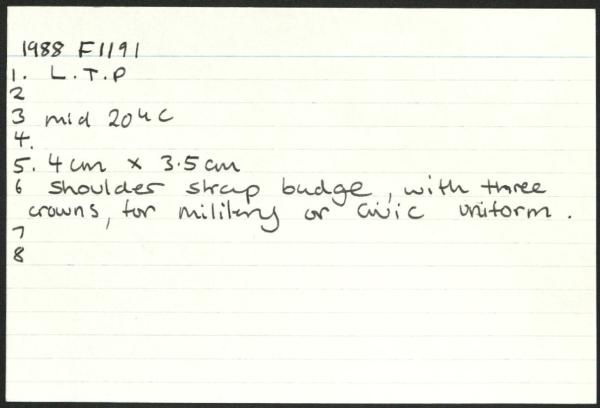 1988 F1191
1. L.T.P
2
3 mid 20th C
4.
5. 4cm x 3.5cm
6 shoulder strap badge, with three
crowns, for military or civic uniform.
7
8